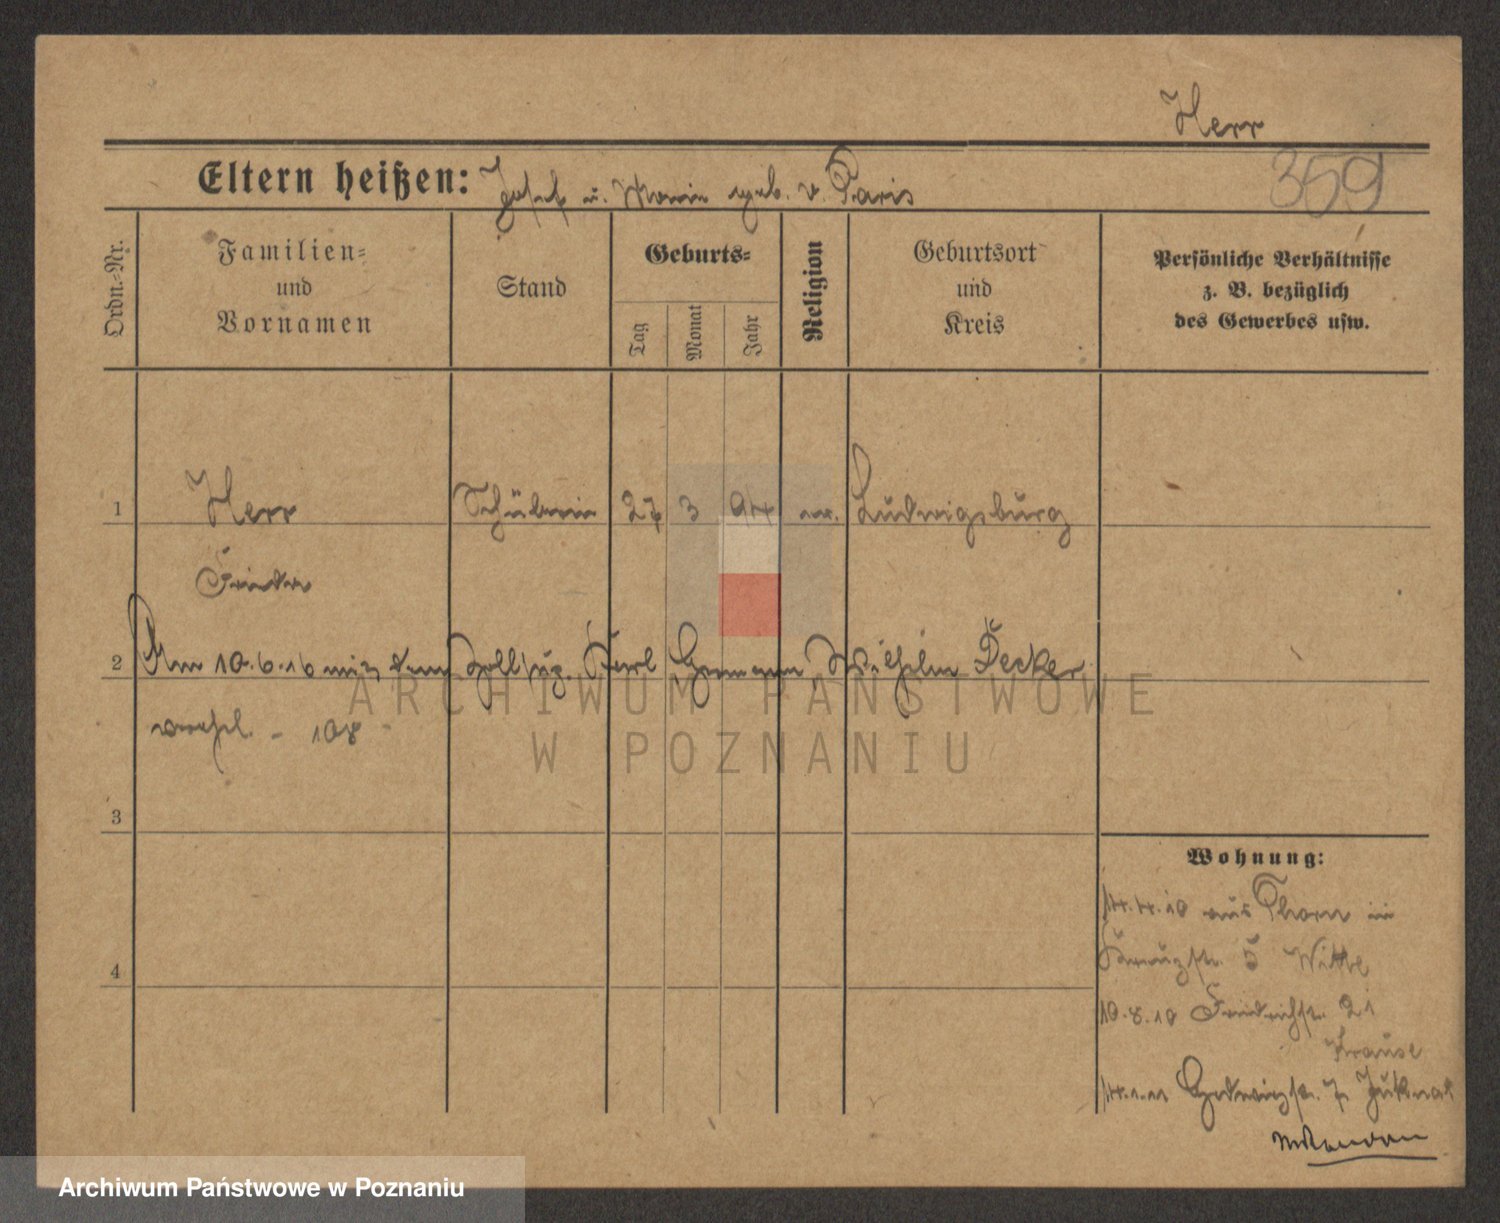 Herr
359
Eltern heißen: Josef u. Marie geb. v. Paris
Ordn.-Nr.
Familien-
und
Vornamen
Stand
Geburts-
Tag
Monat
Jahr
Religion
Geburtsort
und
Kreis
Persönliche Verhältnisse
z. B. bezüglich
des Gewerbes usw.
1 Herr Schülerin 27 3 94 ev. Ludwigsburg
Frieda
2 Am 10.6.16 mit dem Karl Hermann Wilhelm Decker
verehel. - 108 -
3
4
Wohnung:
14.4.10 aus Thorn in
Kreuzstr. 5 Witte
10.8.10 Friedrichstr. 21
Krause
14.1.11 Hedwigstr. 7
ARCHIWUM PAŃSTWOWE
W POZNANIU
Archiwum Państwowe w Poznaniu